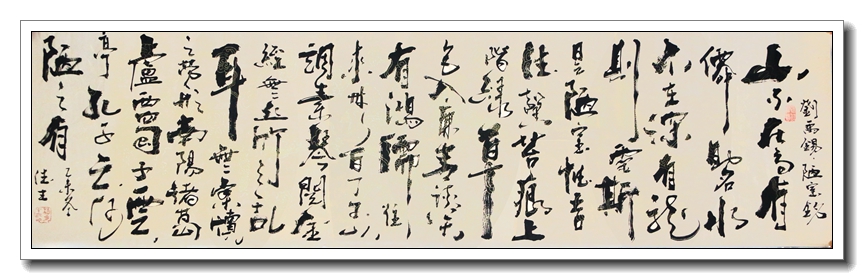 劉禹錫陋室銘
山不在高有
僊則名水
不在深有龍
則靈斯
是陋室惟吾
德馨苔痕上
階緑草
色入簾青談笑
有鴻儒往
來無白丁可以
調素琴閱金
經無絲竹之亂
耳無案牘
之勞形南陽諸葛
廬西蜀子雲
亭孔子云何
陋之有
乙未冬